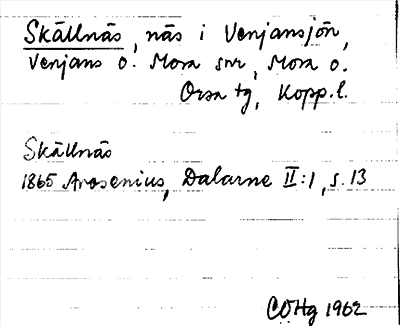 Skällnäs, näs i Venjansjön,
Venjans o. Mora snr, Mora o.
Orsa tg, Kopp.l.
Skällnäs
1865 Arosenius, Dalarne II:1, s. 13
CÖHg 1962